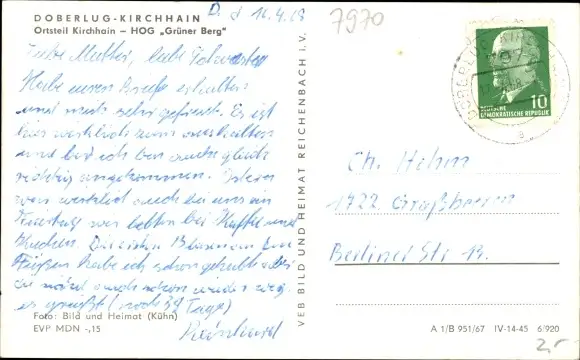 DOBERLUG-KIRCHHAIN
Ortsteil Kirchhain — HOG „Grüner Berg"
D. d 16.4.68
7970
Liebe Mutter, liebe
Habe euren erhalten
und mich sehr gefreut. Es ist
hier wirklich zum aushalten
und bei ich bin auch gleich
richtig angekommen. Ostern
war wirklich auch bei uns ein
Feiertag wir bei Kaffee und
Kuchen. Die ersten Blasen an den
Füßen habe ich schon gehabt
auch schon wieder weg.
es grüßt (noch Tage)
Reinhard
Foto: Bild und Heimat (Kühn)
EVP MDN -,15
VEB BILD UND HEIMAT REICHENBACH I. V.
DOBERLUG-KIRCHHAIN
10
DEUTSCHE
DEMOKRATISCHE REPUBLIK
a
Ch. Hehm
1722 Großbeeren
Berliner Str. 13.
A 1/B 951/67 IV-14-45 6/920